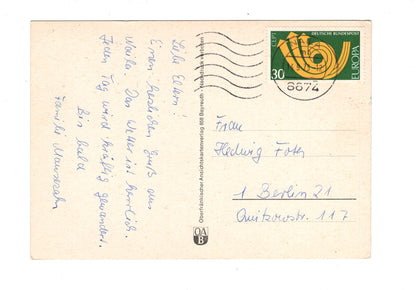 Liebe Eltern!
Einen herzlichen Gruß aus
Naila. Das Wetter ist herrlich.
Jeden Tag wird kräftig gewandert.
Bis bald
Familie
Oberfränkischer Ansichtskartenverlag 858 Bayreuth · Nachdruck verboten
OA
B
CEPT
DEUTSCHE BUNDESPOST
30
EUROPA
8674
Frau
Hedwig Foth
1 Berlin 21
Quitzowstr. 117